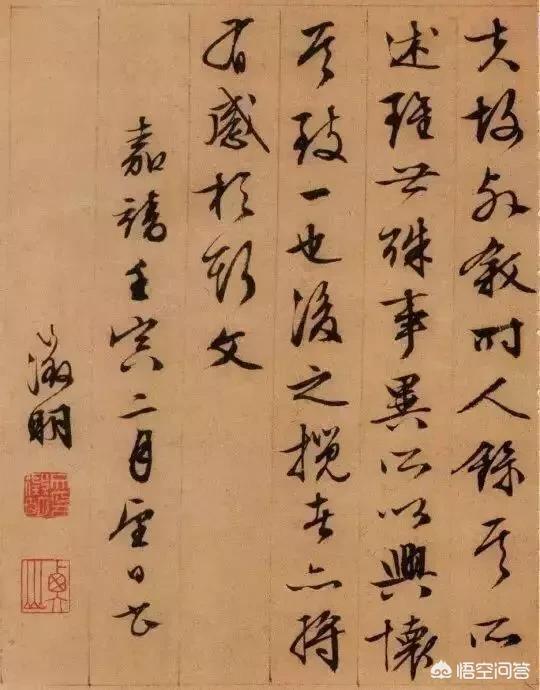 夫故列敘時人錄其所
述雖世殊事異所以興懷
其致一也後之攬者亦將
有感於斯文
嘉靖壬寅二月望日書
徵明
悟空问答